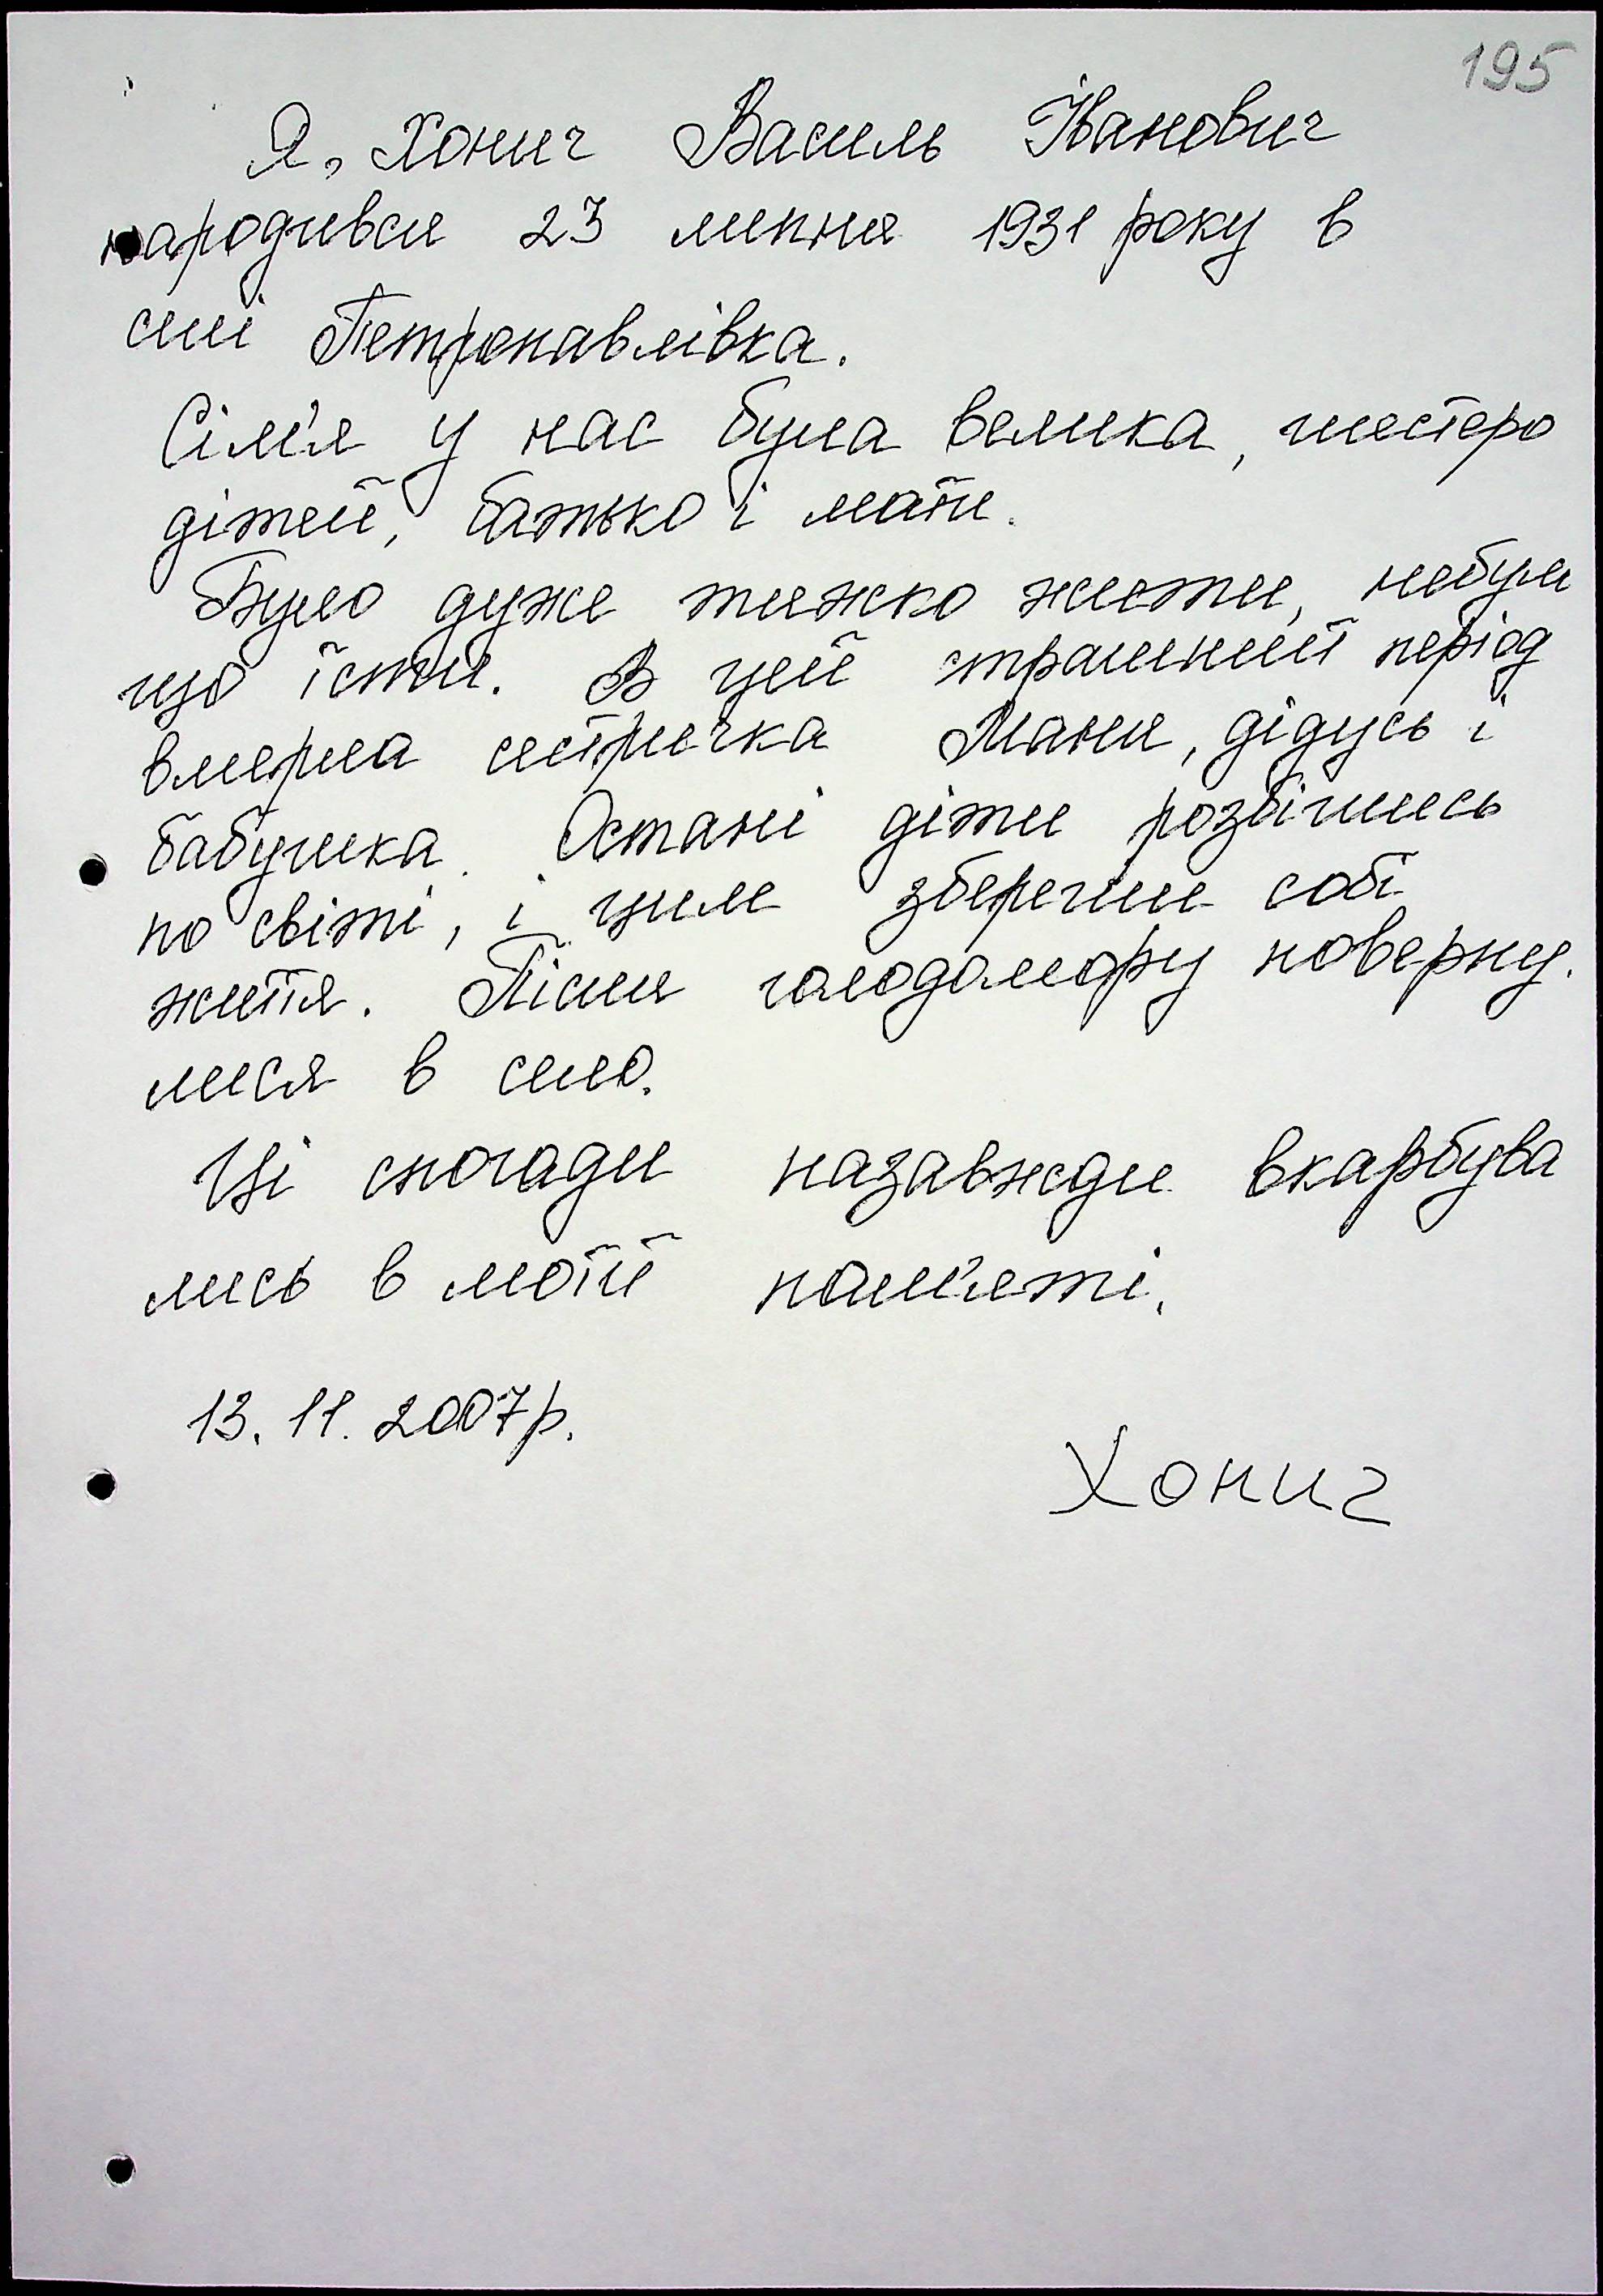 195
Я, Хонич Василь Іванович
народився 23 липня 1931 року в
селі Петропавлівка.
Сімʼя у нас була велика, шестеро
дітей, батько і мати.
Було дуже тяжко жити, небули
що їсти. В цей страшний період
вмерла сестричка Маня, дідусь і
бабушка. Остані діти розбіглись
по світі, і цим зберегли собі
життя. Після голодомору поверну.
лися в село.
Ці спогади назавжди вкарбува
лись в моїй памʼяті.
13. 11. 2007р.
Хонич